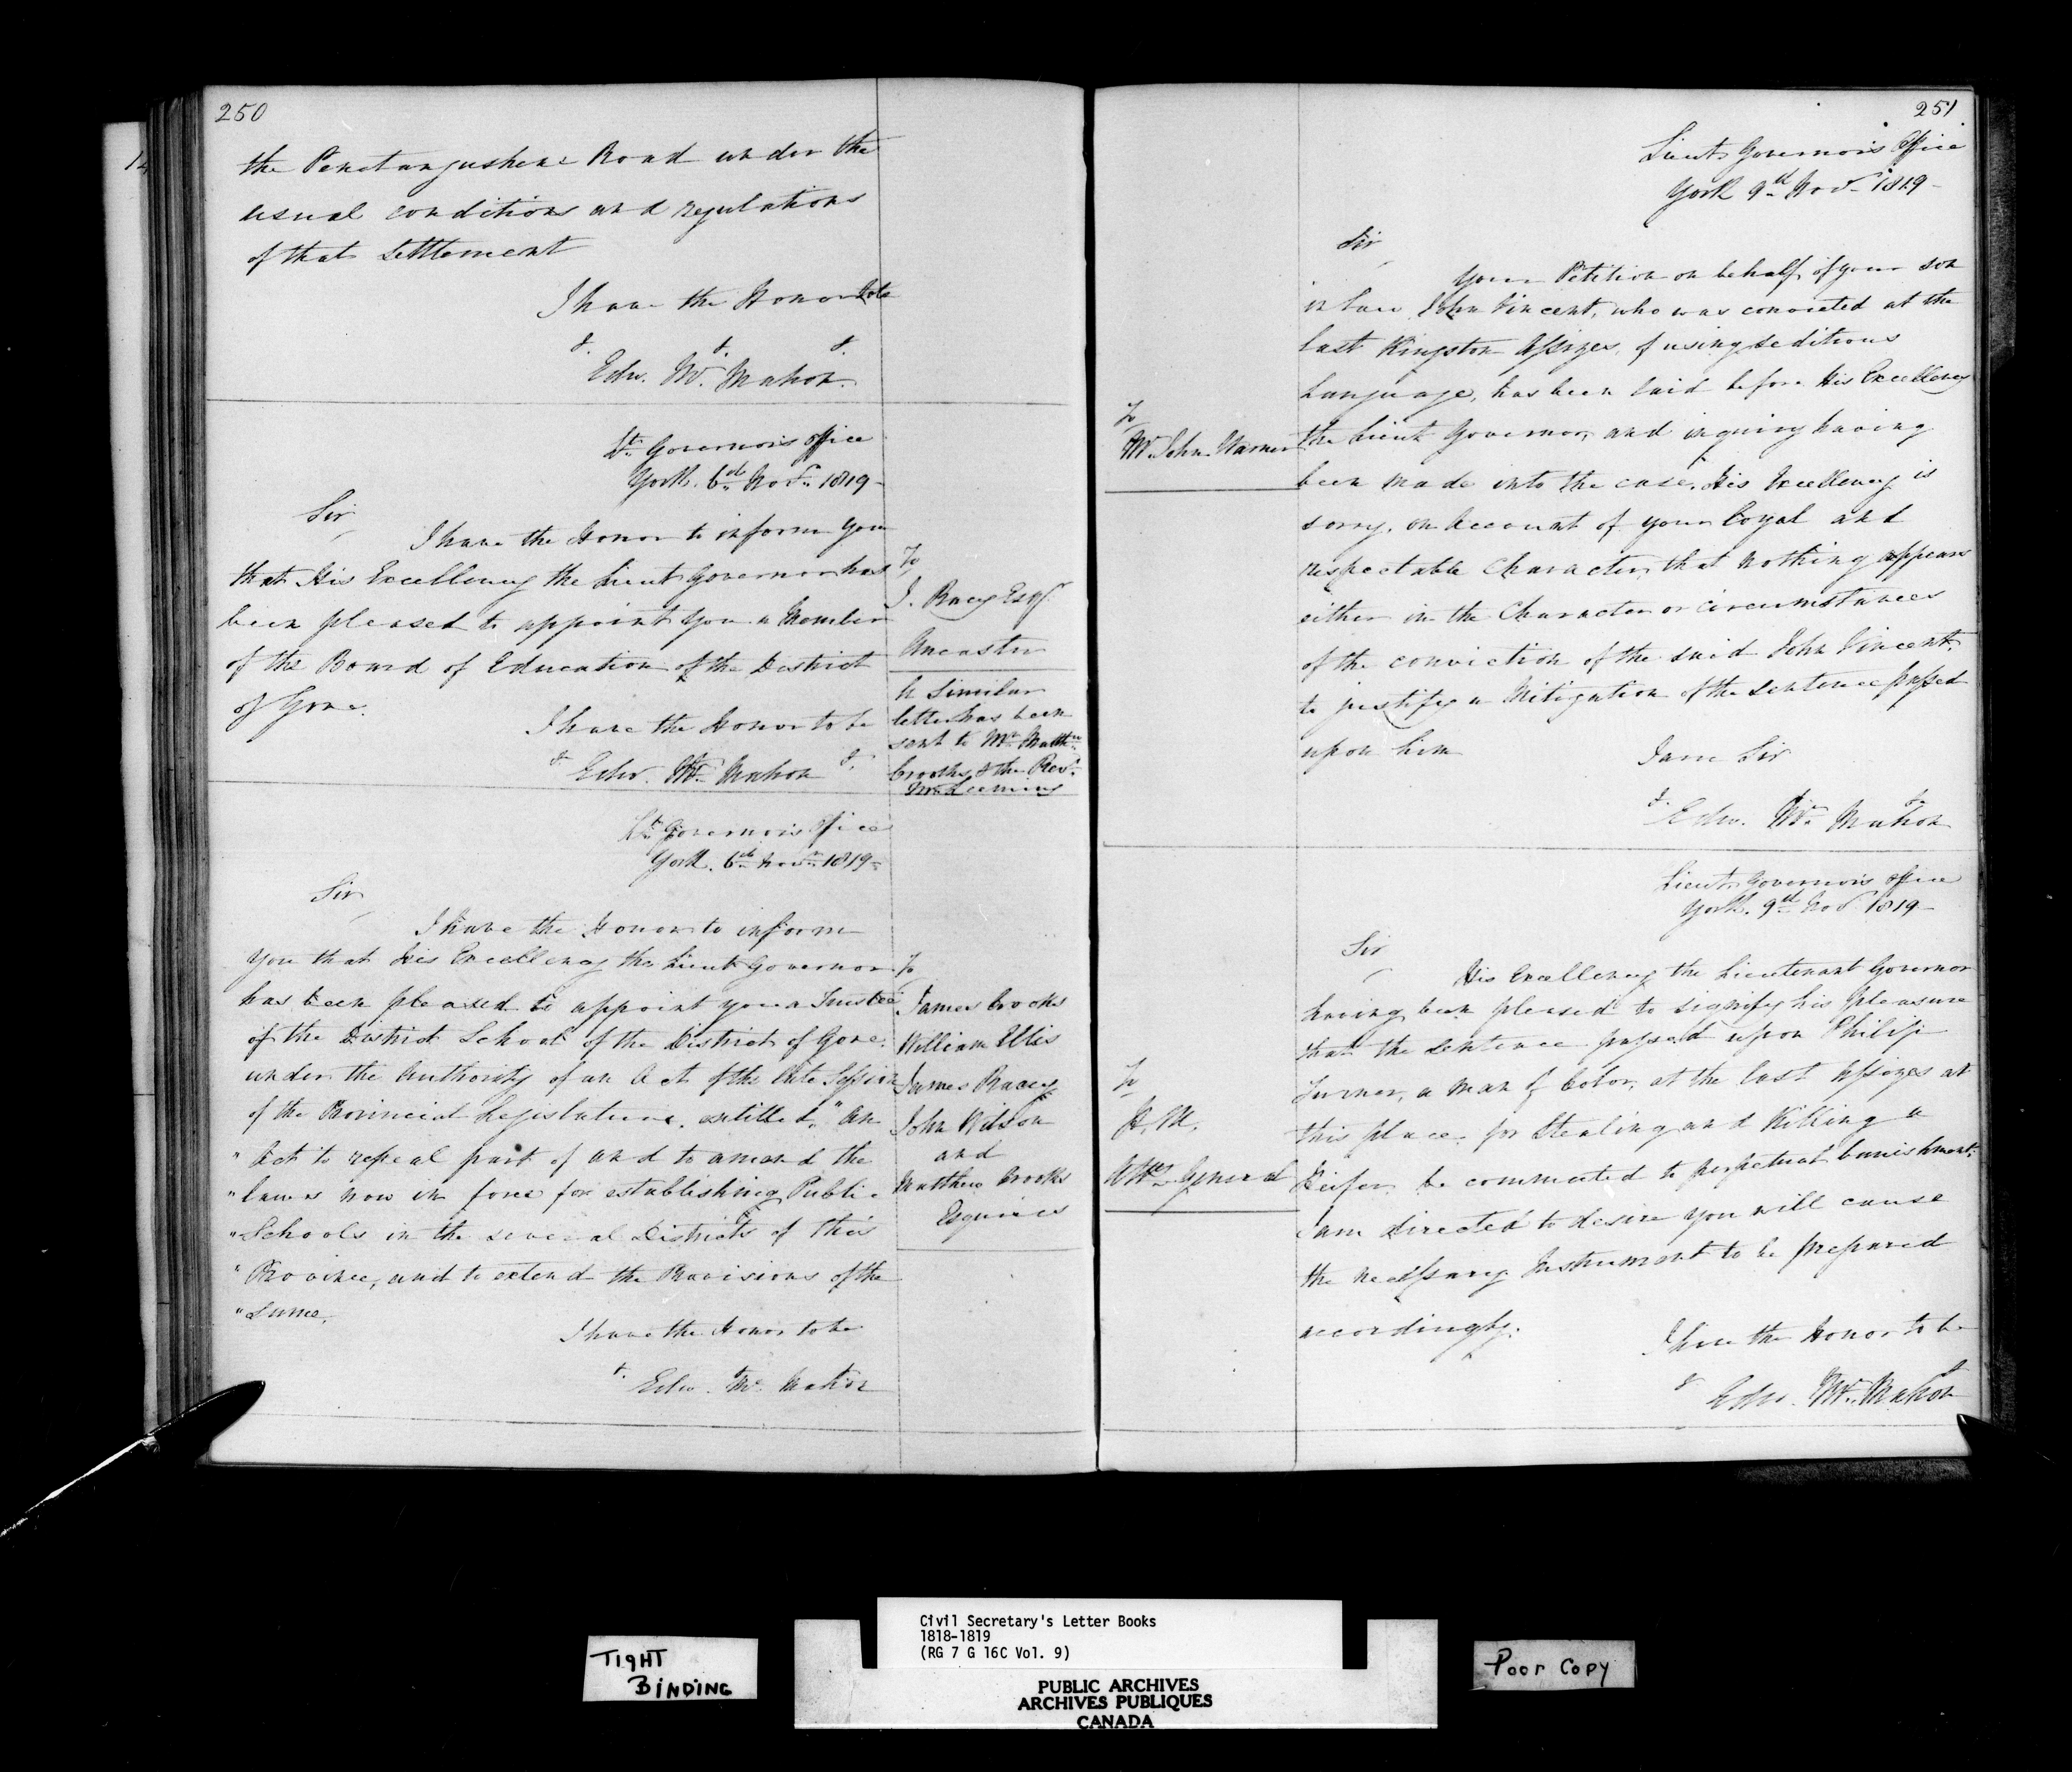 250
the Penetangushene Road under the
usual conditions and regulations
of that Settlement
I have the Honor to be
&. &. &.
Edw. McMahon.
Lt. Governor's Office
York. 6th Novr. 1819-
Sir,
I have the Honor to inform you
that His Excellency the Lieut Governor has
been pleased to appoint you a Member
of the Board of Education of the District
of Gore.
I have the Honor to be
& Edw. McMahon &.
To
J. Racey Esqr.
Ancaster
A Similar
letter has been
sent to Mr. Matthw
Crooks & the Revd.
Mr. Leeming
Lt. Governor's Office
York. 6th Novr. 1819-
Sir,
I have the Honor to inform
you that His Excellency the Lieut Governor
has been pleased to appoint you a Trustee
of the District School of the District of Gore.
under the authority of an Act of the late Session
of the Provincial Legislature. entitled, "An
"Act to repeal part of and to amend the
"laws now in force for establishing Public
"Schools in the several Districts of this
"Province, and to extend the Provisions of the
"Same.
I have the Honor to be
&. Edw. McMahon
To
James Crooks
William Ellis
James Racey
John Wilson
and
Matthew Crooks
Esquires
251
Lieut Governor's Office
York 9th Novr 1819-
Sir,
Your Petition on behalf of your son
in law John Vincent, who was convicted at the
last Kingston Assizes, of using seditious
language, has been laid before His Excellency
the Lieut Governor, and inquiry having
been made into the case, His Excellency is
sorry, on Account of your loyal and
respectable Character, that nothing appears
either in the Character or circumstances
of the conviction of the said John Vincent,
to justify a Mitigation of the Sentence passed
upon him
I am Sir
&. &.
Edw. McMahon
To
Mr. John Warner
Lieut Governor's Office
York. 9th Nov 1819-
Sir,
His Excellency the Lieutenant Governor
having been pleased to signify his pleasure
that the Sentence passed upon Philip
Turner, a man of Color, at the last Assizes at
this place, for Stealing and Killing a
Heifer, be commuted to perpetual banishment.
I am directed to desire you will cause
the necessary Instrument to be prepared
accordingly.
I have the Honor to be
& &
Edw. McMahon
To
H. M.
Atty. General
TIGHT
BINDING
Civil Secretary's Letter Books
1818-1819
(RG 7 G 16C Vol. 9)
PUBLIC ARCHIVES
ARCHIVES PUBLIQUES
CANADA
Poor Copy